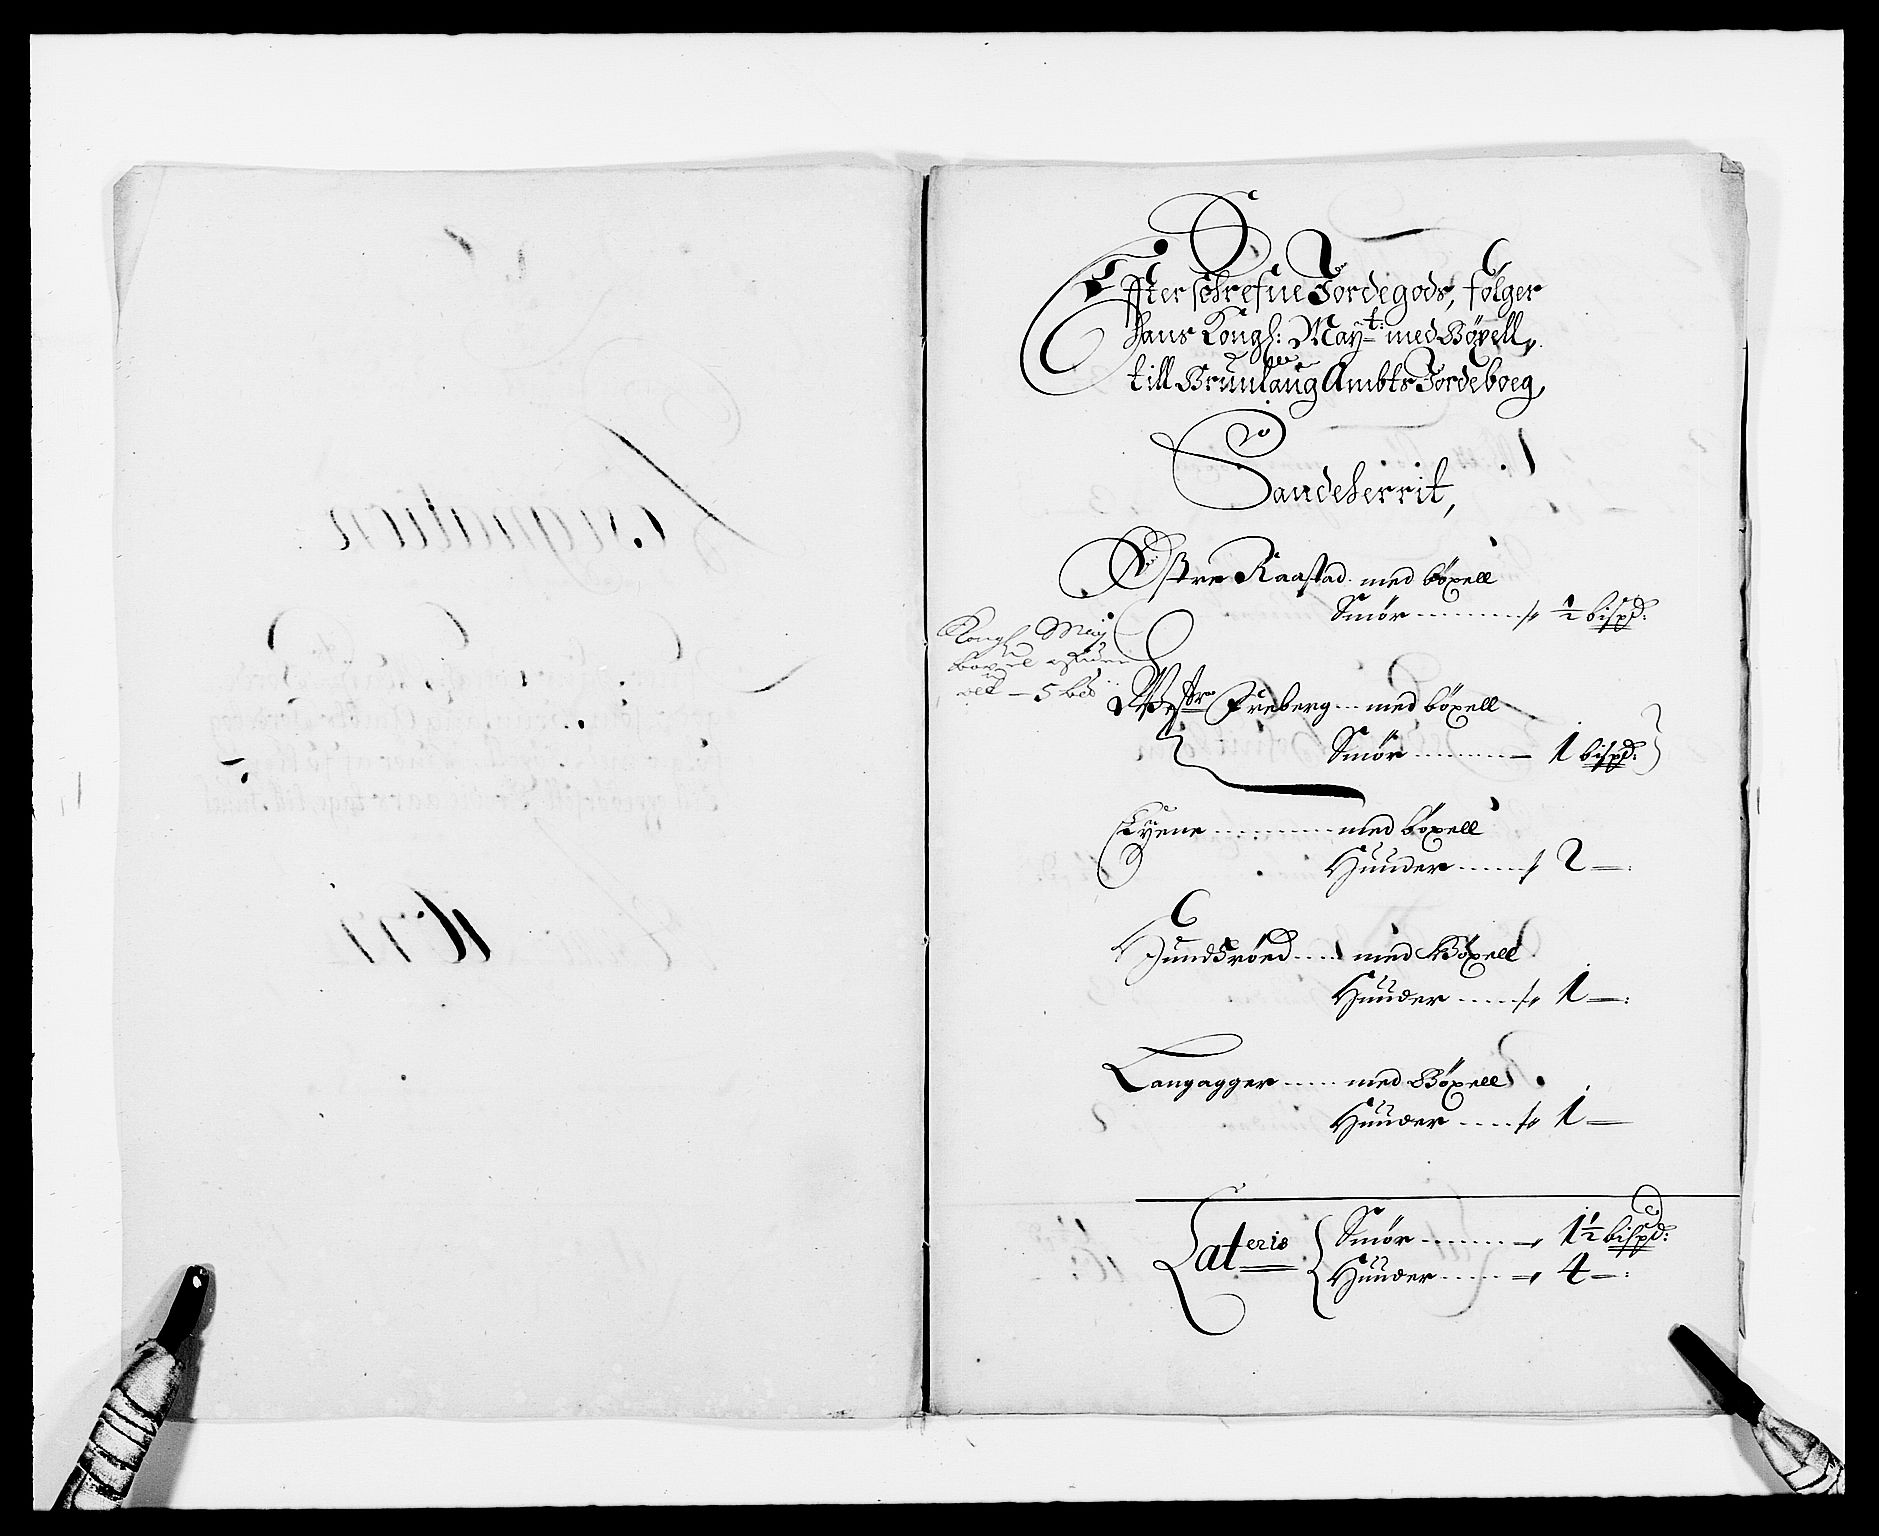 Effterschrefne Jordegods, følger
hans Kongl: Mayt: med Böxell,
till Brunlaug Ambts Jordeboeg,
Sandeherrit,
Østre Raastad med böxell
Smör ......... 1/2 bispd:
Kongl May
böxel
5 bd
Westre Freberg ... med böxell
Smör ......... 1 bispd:
Eyene ......... med böxell
Huuder ...... 2 —:
Hundsröed .... med Böxell
Huuder ..... 1 —:
Langagger ..... med Böxell
Huuder .... 1 —
Lateris { Smör ........ 1 1/2 bispd:
Huuder ...... 4 —: